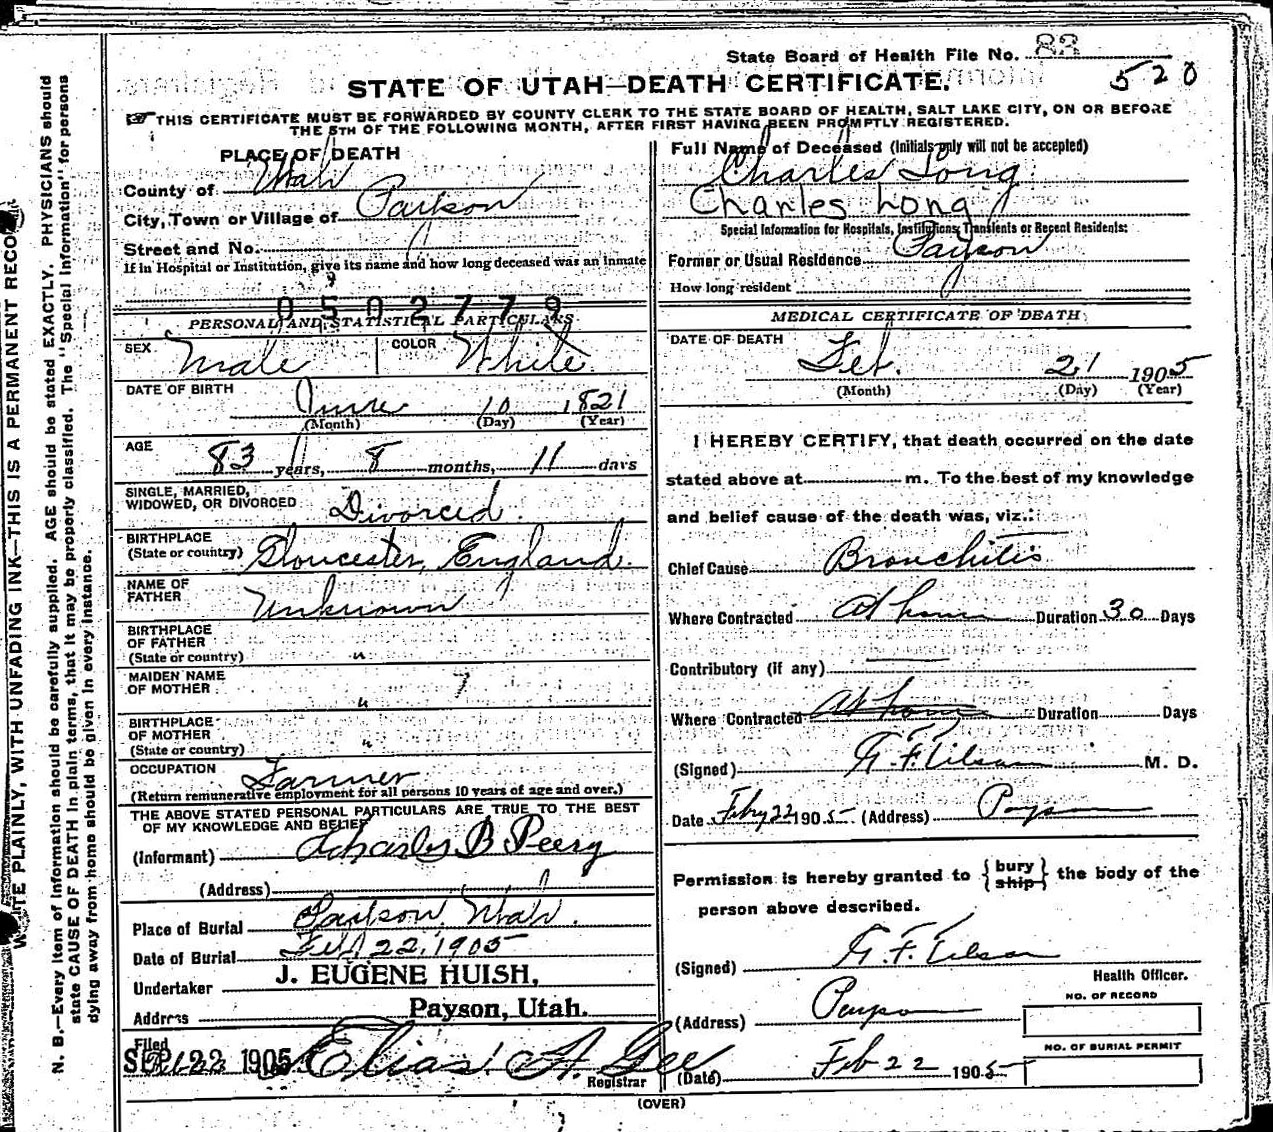 State Board of Health File No. 83
520
STATE OF UTAH—DEATH CERTIFICATE.
THIS CERTIFICATE MUST BE FORWARDED BY COUNTY CLERK TO THE STATE BOARD OF HEALTH, SALT LAKE CITY, ON OR BEFORE
THE 5TH OF THE FOLLOWING MONTH, AFTER FIRST HAVING BEEN PROMPTLY REGISTERED.
PLACE OF DEATH
County of Utah
City, Town or Village of Payson
Street and No.
If in Hospital or Institution, give its name and how long deceased was an inmate
0502779
PERSONAL AND STATISTICAL PARTICULARS
SEX Male COLOR White
DATE OF BIRTH June 10 1821
(Month) (Day) (Year)
AGE 83 years, 8 months, 11 days
SINGLE, MARRIED,
WIDOWED, OR DIVORCED Divorced
BIRTHPLACE
(State or country) Gloucester, England.
NAME OF
FATHER Unknown
BIRTHPLACE
OF FATHER
(State or country) "
MAIDEN NAME
OF MOTHER "
BIRTHPLACE
OF MOTHER
(State or country) "
OCCUPATION Farmer
(Return remunerative employment for all persons 10 years of age and over.)
THE ABOVE STATED PERSONAL PARTICULARS ARE TRUE TO THE BEST
OF MY KNOWLEDGE AND BELIEF
(Informant) Charles B Peery
(Address)
Place of Burial Payson, Utah.
Date of Burial Feb 22, 1905
Undertaker J. EUGENE HUISH,
Address Payson, Utah.
Filed
22 1905 Elias A. Gee
Registrar
Full Name of Deceased (Initials only will not be accepted)
Charles Long
Charles Long
Special Information for Hospitals, Institutions, Transients or Recent Residents:
Former or Usual Residence Payson
How long resident
MEDICAL CERTIFICATE OF DEATH
DATE OF DEATH
Feb. 21 1905
(Month) (Day) (Year)
I HEREBY CERTIFY, that death occurred on the date
stated above at m. To the best of my knowledge
and belief cause of the death was, viz.:
Chief Cause Bronchitis
Where Contracted At home Duration 30 Days
Contributory (if any)
Where Contracted At home Duration Days
(Signed) G. F. Tilson M. D.
Date Feby 22 1905 (Address) Payson
Permission is hereby granted to {bury ship} the body of the
person above described.
(Signed) G. F. Tilson
Health Officer.
(Address) Payson
NO. OF RECORD
NO. OF BURIAL PERMIT
(Date) Feb 22 1905
(OVER)
WRITE PLAINLY, WITH UNFADING INK—THIS IS A PERMANENT RECO
N. B.—Every item of information should be carefully supplied. AGE should be stated EXACTLY. PHYSICIANS should
state CAUSE OF DEATH in plain terms, that it may be properly classified. The "Special Information" for persons
dying away from home should be given in every instance.